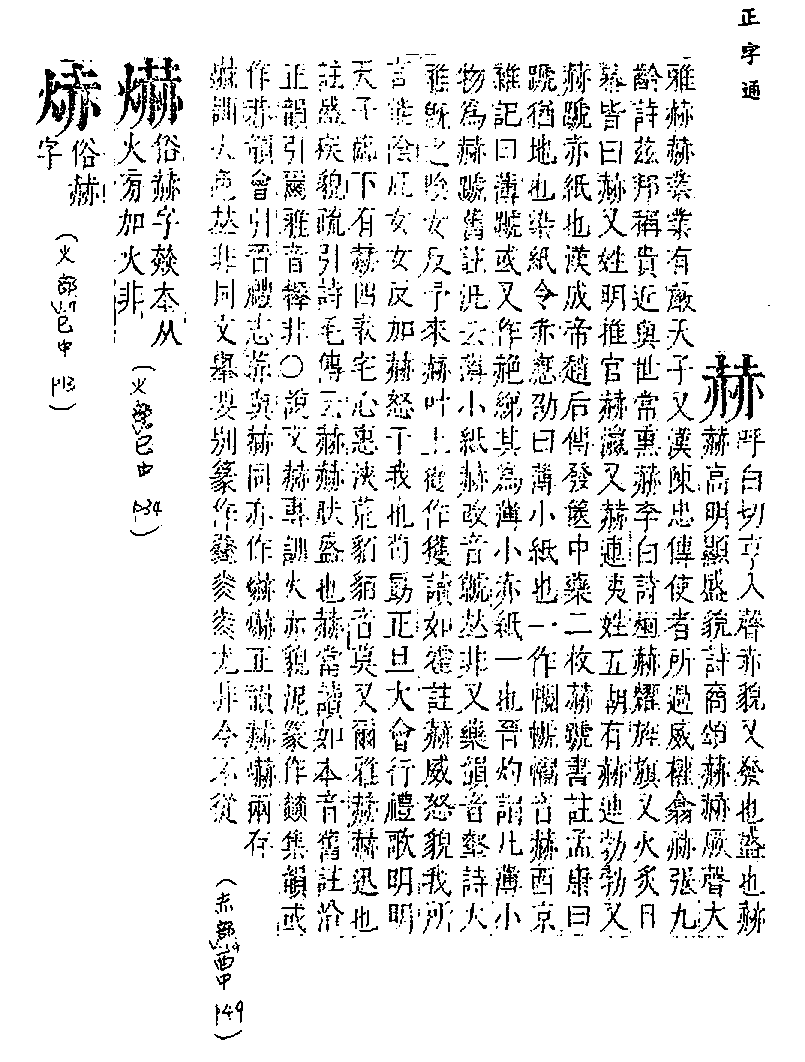 正字通
赫
呼白切亨入聲赤貌又發也盛也赫
赫高明顯盛貌詩商頌赫赫厥聲大
雅赫赫業業有嚴天子又漢陳忠傳使者所過威權翕赫張九
齡詩茲邦稱貴近與世常熏赫李白詩烜赫耀旌旗又火炙日
暴皆曰赫又姓明推官赫瀛又赫連夷姓五胡有赫連勃勃又
赫蹏赤紙也漢成帝趙后傳發篋中藥二枚赫蹏書註孟康曰
蹏猶地也染紙令赤應劭曰薄小紙也一作
赫西京
雜記曰薄蹏或又作
其為薄小赤紙一也晉灼謂凡薄小
物為赫蹏舊註汎云薄小紙赫改音虩𠀤非又藥韻音壑詩大
雅旣之陰女反予來赫叶上獲作穫讀如霍註赫威怒貌我所
言能陰庇女女反加赫怒于我也尚勗正旦大會行禮歌明明
天子臨下有赫四表宅心惠浹荒貊貊音莫又爾雅赫赫迅也
註盛疾貌疏引詩毛傳云赫赫肰盛也赫當讀如本音舊註沿
正韻引爾雅音
非○說文赫專訓火赤貌泥篆作
集韻或
作
韻會引晉禮志
與赫同亦作爀嚇正韻赫嚇兩存
嚇訓大
𠀤非同文舉要別篆作
尤非今不從
(赤部 酉中 P49)
爀
俗赫字
本从
火旁加火非
(火部 巳中 P34)
焃
俗赫
字
(火部 巳中 P13)